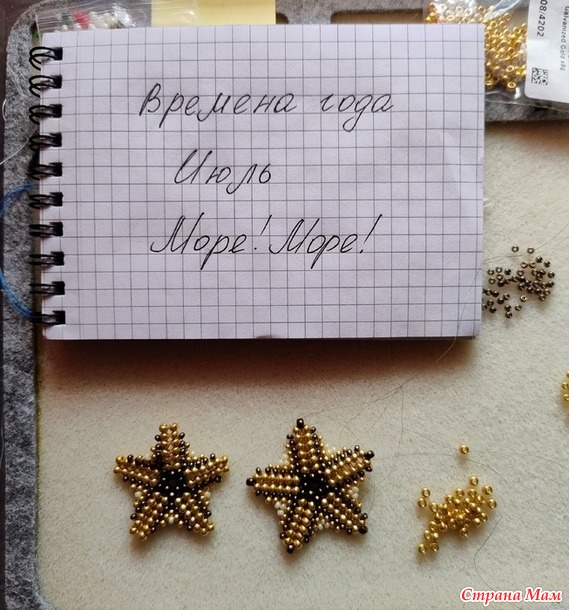 Времена года
Июль
Море! Море!
08/4202
Galvanized Gold
Страна Мам